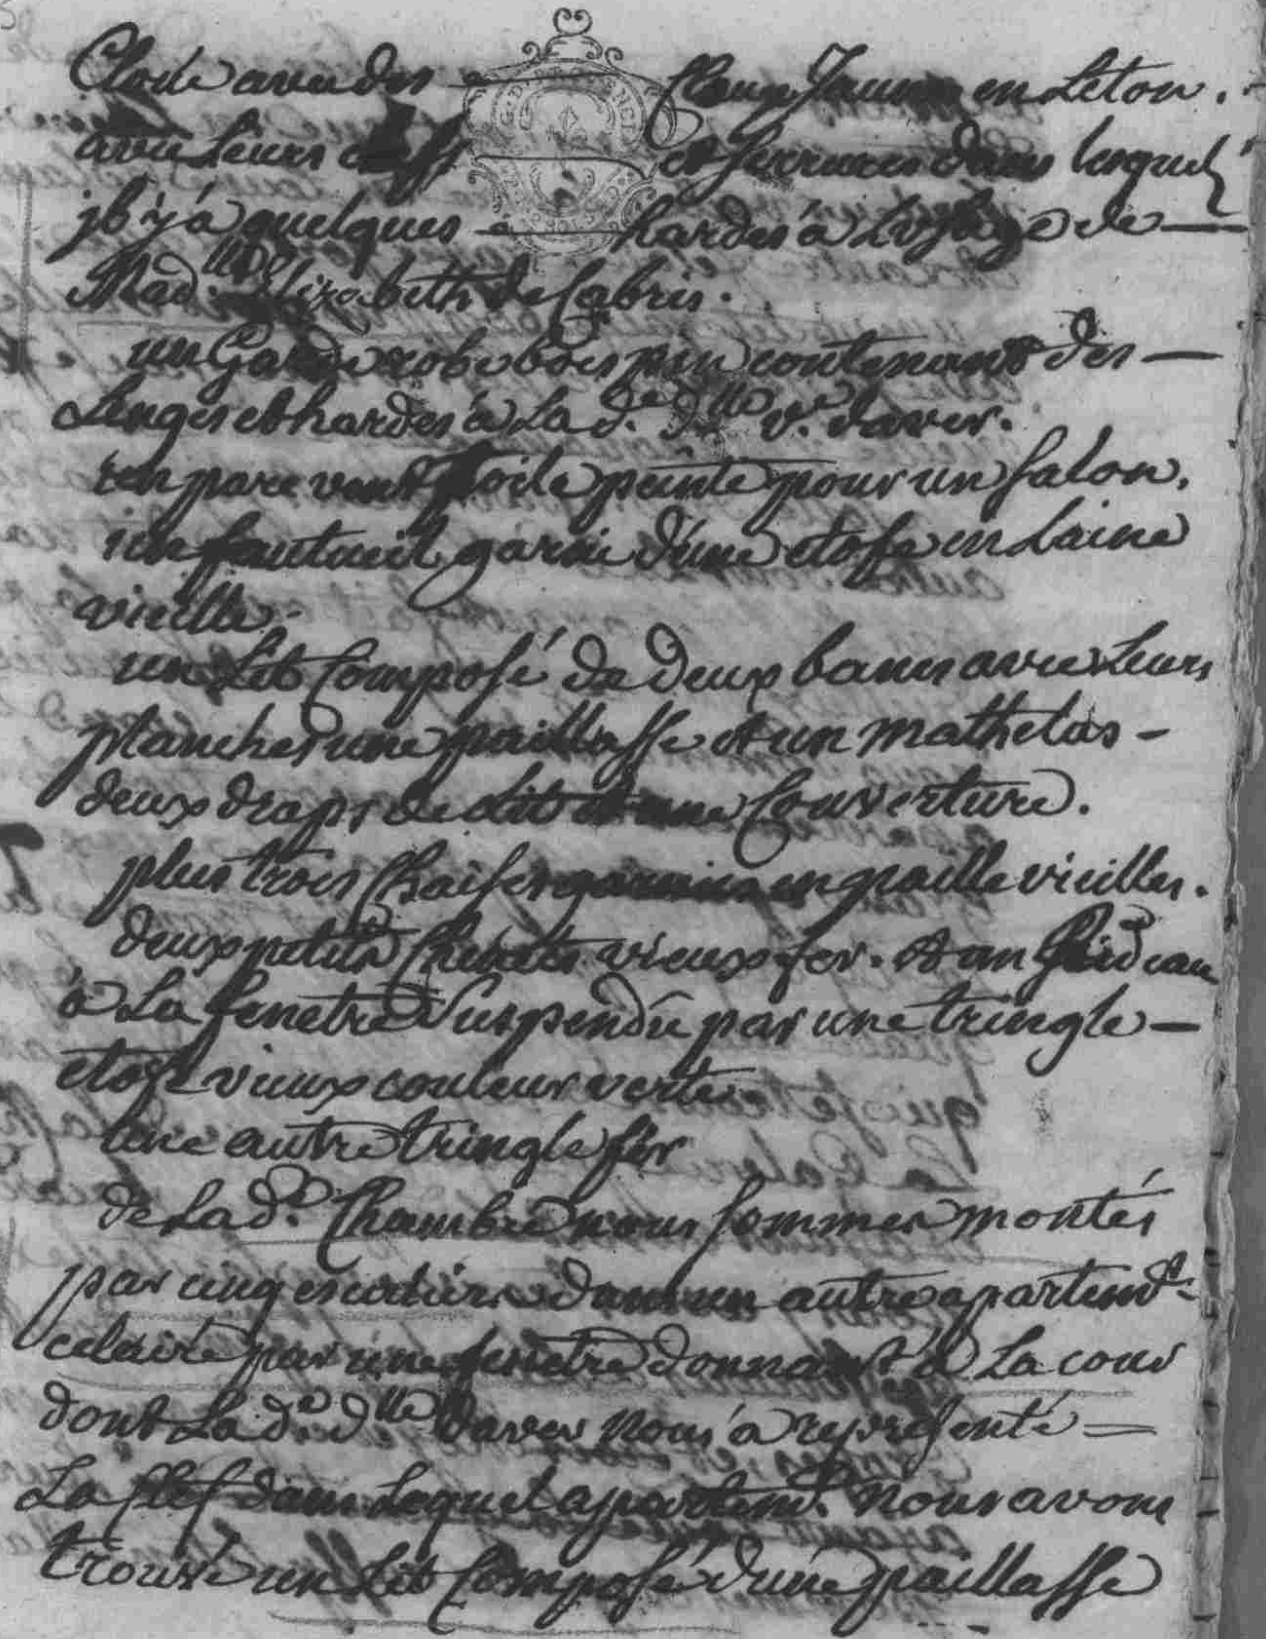 Cloué avec des cloux Jaunes en Leton.
avec Leurs cleff et serrures dans lesquels
jl y'à quelques hardes à Lusage de
Mad.lle Elizabeth de Cabris.
un Garderobe bois pin contenant des
Linges et hardes à La d.e d.lle v.e daver.
un paravent toile peinte pour un salon.
un fauteuil garni d'une etofe en Laine
vieille.
un Lit Composé de Deux bancs avec Leurs
planches une paillasse et un mathelas
deux draps de lit et une Couverture.
plus trois Chaises garnies en paille vieilles.
deux petits Chenets vieux fer. et un Rideau
à La fenetre Suspendu par une tringle
etofe vieux couleur verte
une autre tringle fer
de La d.e Chambre nous sommes montés
par cinq escaliers dans un autre apartemt.
eclairé par une fenetre donnant à La cour
dont La d.e d.lle Daver nous à représenté
La Clef dans Lequel apartemt. nous avons
trouvé un Lit Composé d'une paillasse